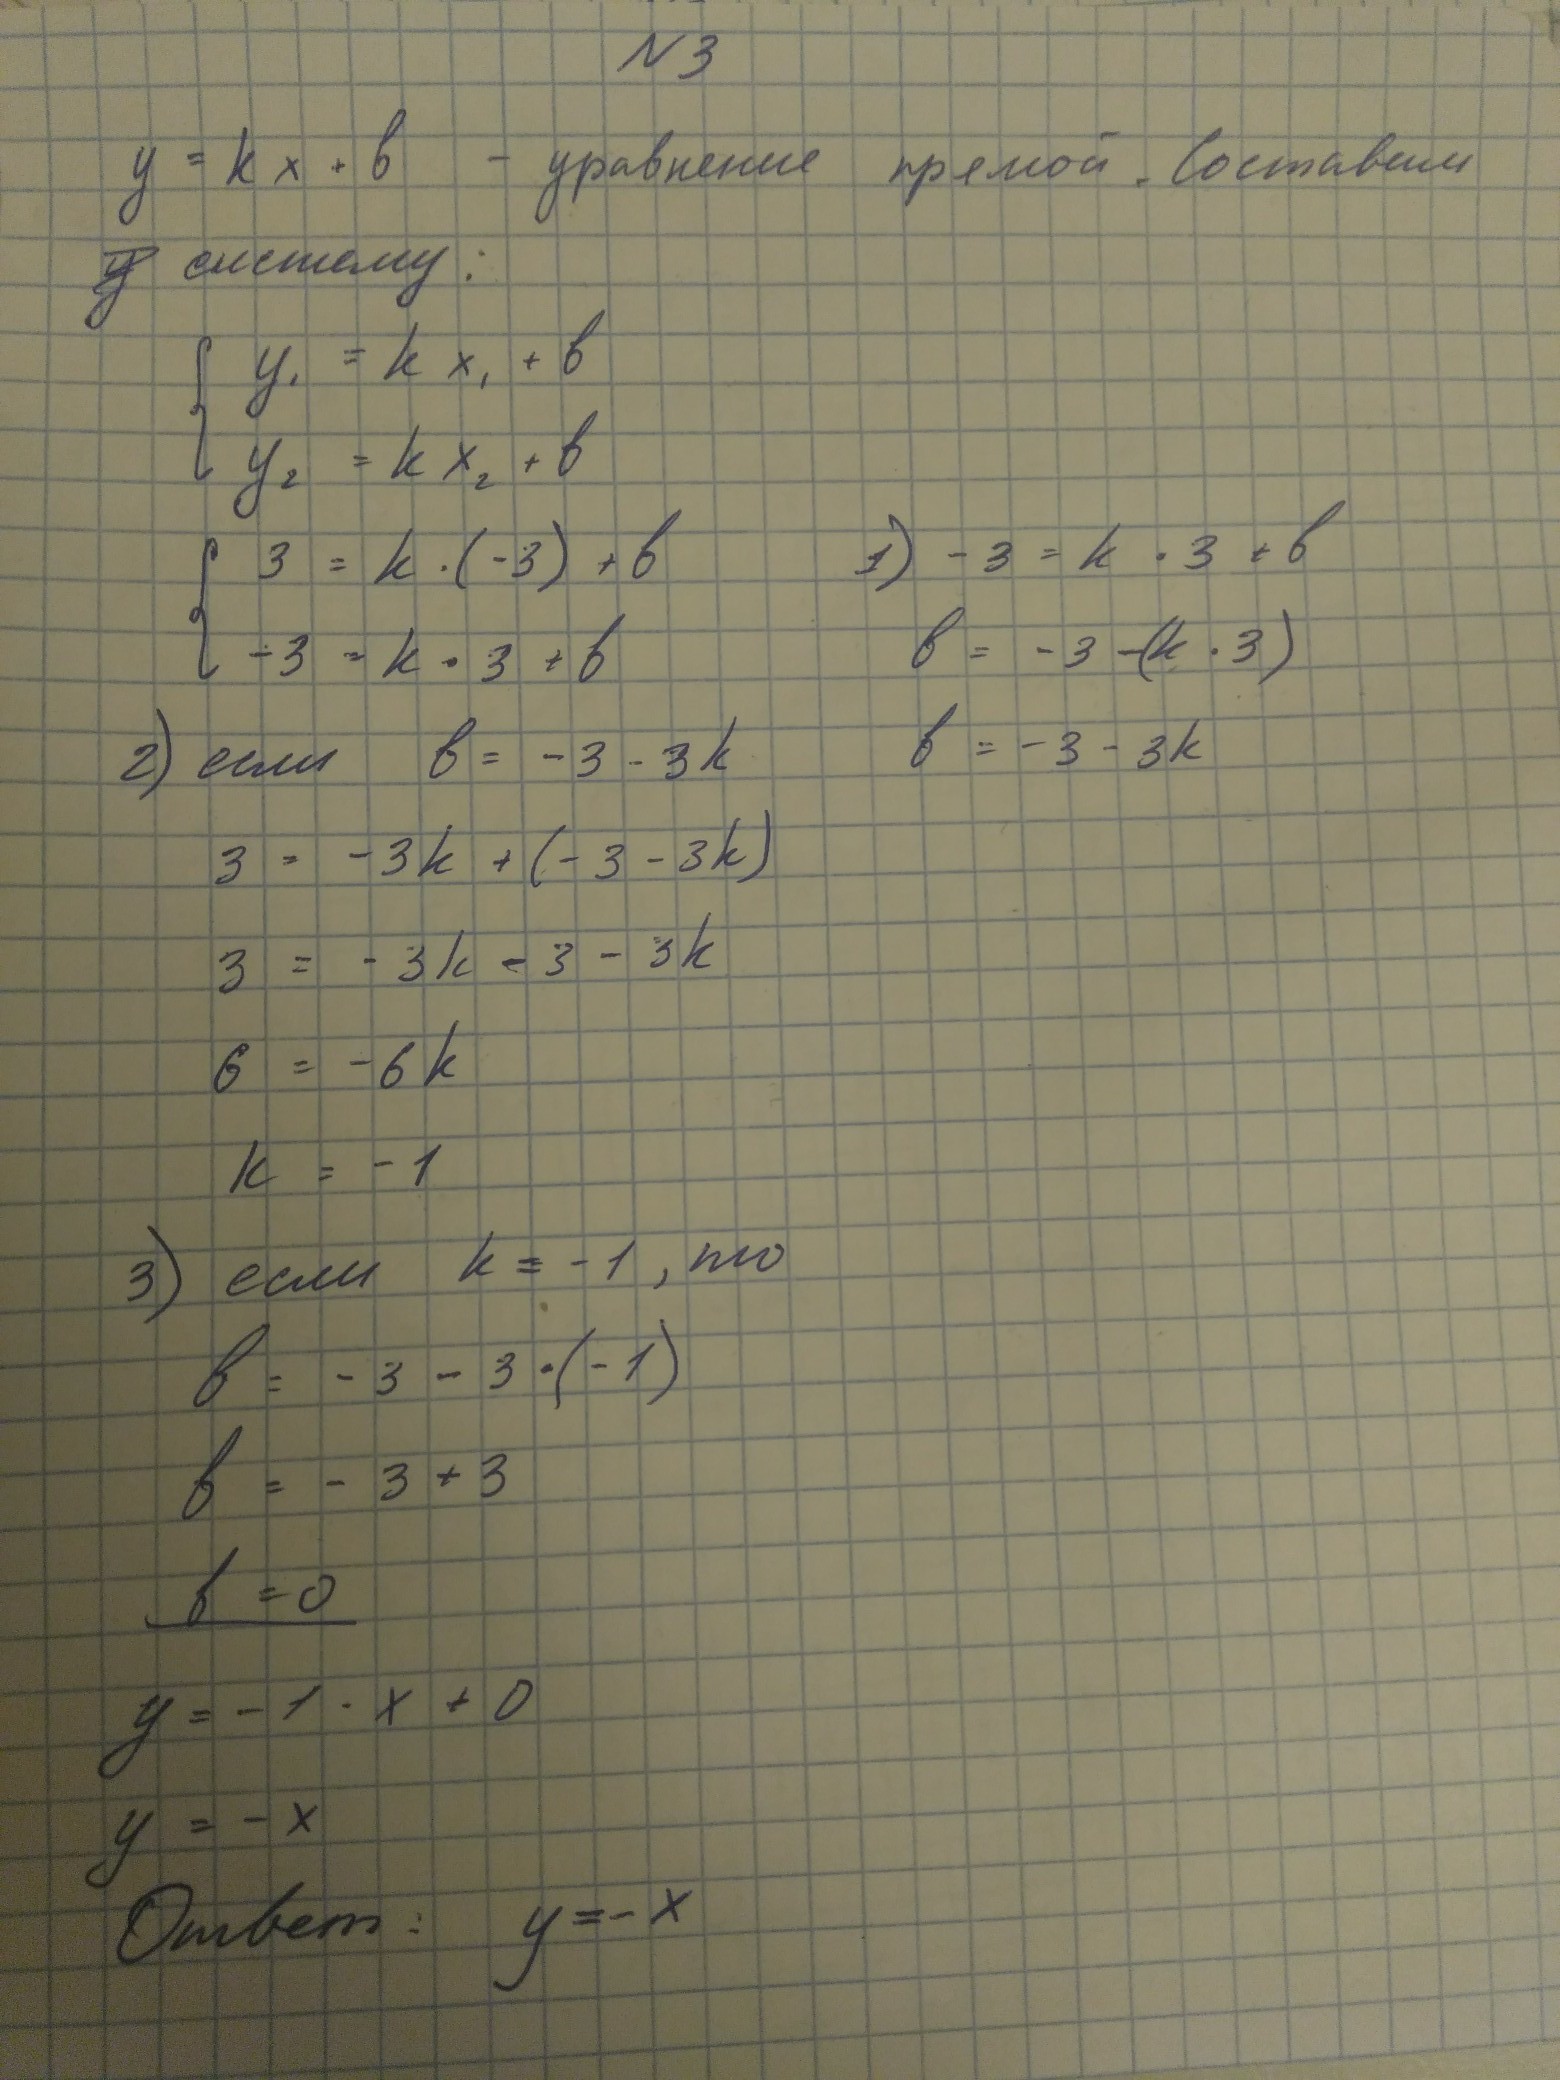 N3
y = kx + b - уравнение прямой. Составим
систему:
y₁ = kx₁ + b
y₂ = kx₂ + b
3 = k·(-3) + b
-3 = k·3 + b
1) -3 = k·3 + b
b = -3 -(k·3)
b = -3 - 3k
2) если b = -3 - 3k
3 = -3k + (-3 - 3k)
3 = -3k - 3 - 3k
6 = -6k
k = -1
3) если k = -1, то
b = -3 - 3·(-1)
b = -3 + 3
b = 0
y = -1·x + 0
y = -x
Ответ: y = -x